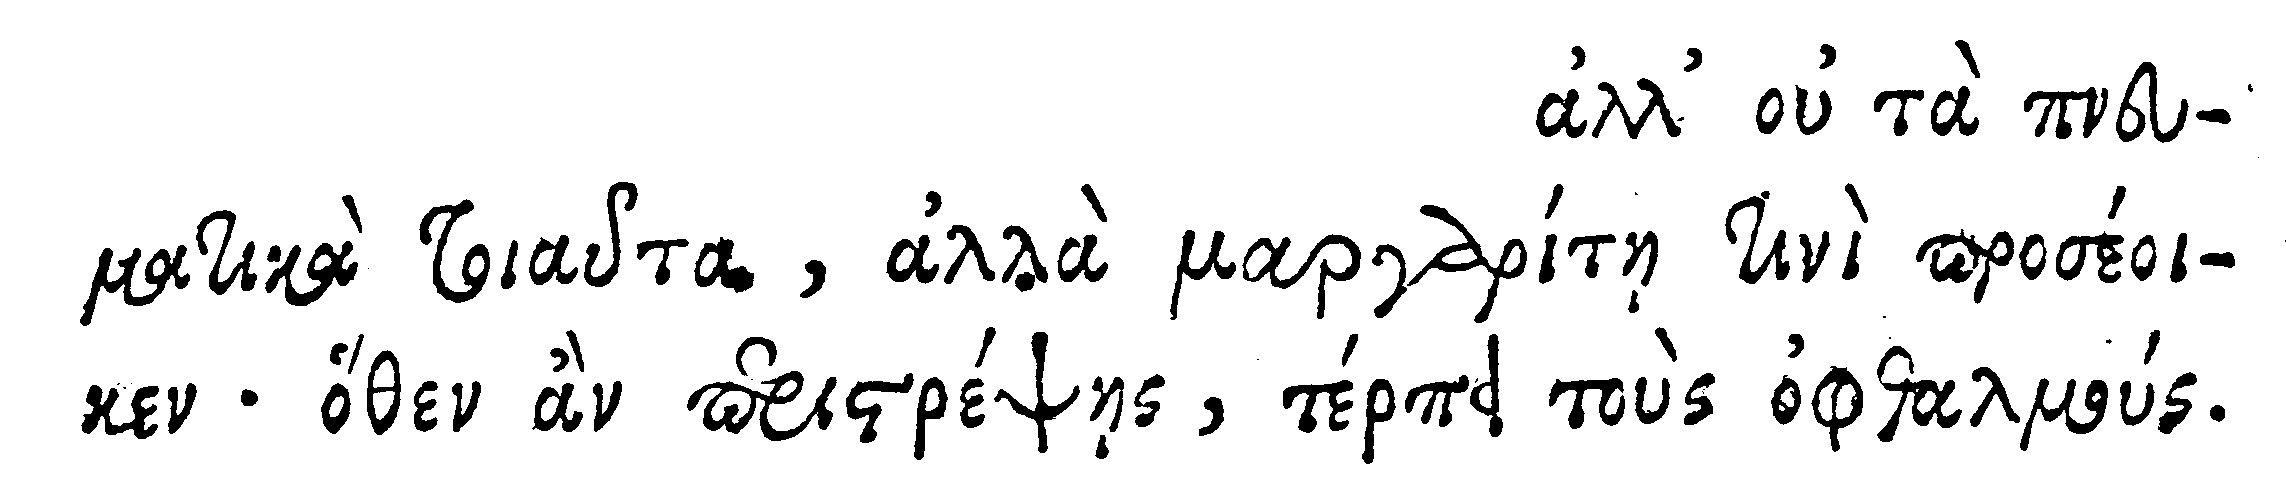 ἀλλ’ οὐ τὰ πνευ-
ματικὰ τοιαῦτα, ἀλλὰ μαργαρίτῃ τινὶ προσέοι-
κεν· ὅθεν ἂν περιστρέψῃς, τέρπει τοὺς ὀφθαλμούς.